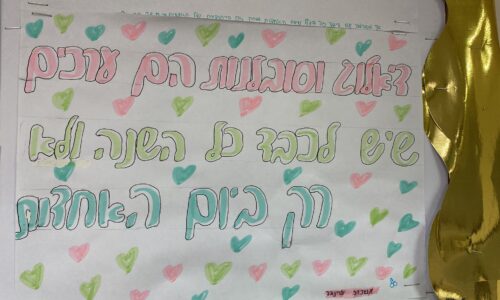 דיאלוג וסובלנות הם ערכים
שיש לכבד כל השנה ולא
רק ביום האחדות